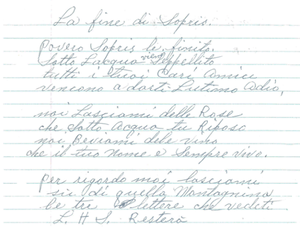 La fine di Sopris.
Povero Sopris lé finito
Sotto L'acqua vivo Seppellito
tutti i tuoi Cari Amici
vencono a darti Lultimo Adio,
noi Lasciami delle Rose
che Sotto Acqua tu Riposo
noi Beviami dele vino
che il tuo nome e Sempre vivo.
per rigordo noi lasciami
six di quella Montagnina
le tre lettere che vedeti
L. H. S. Restera